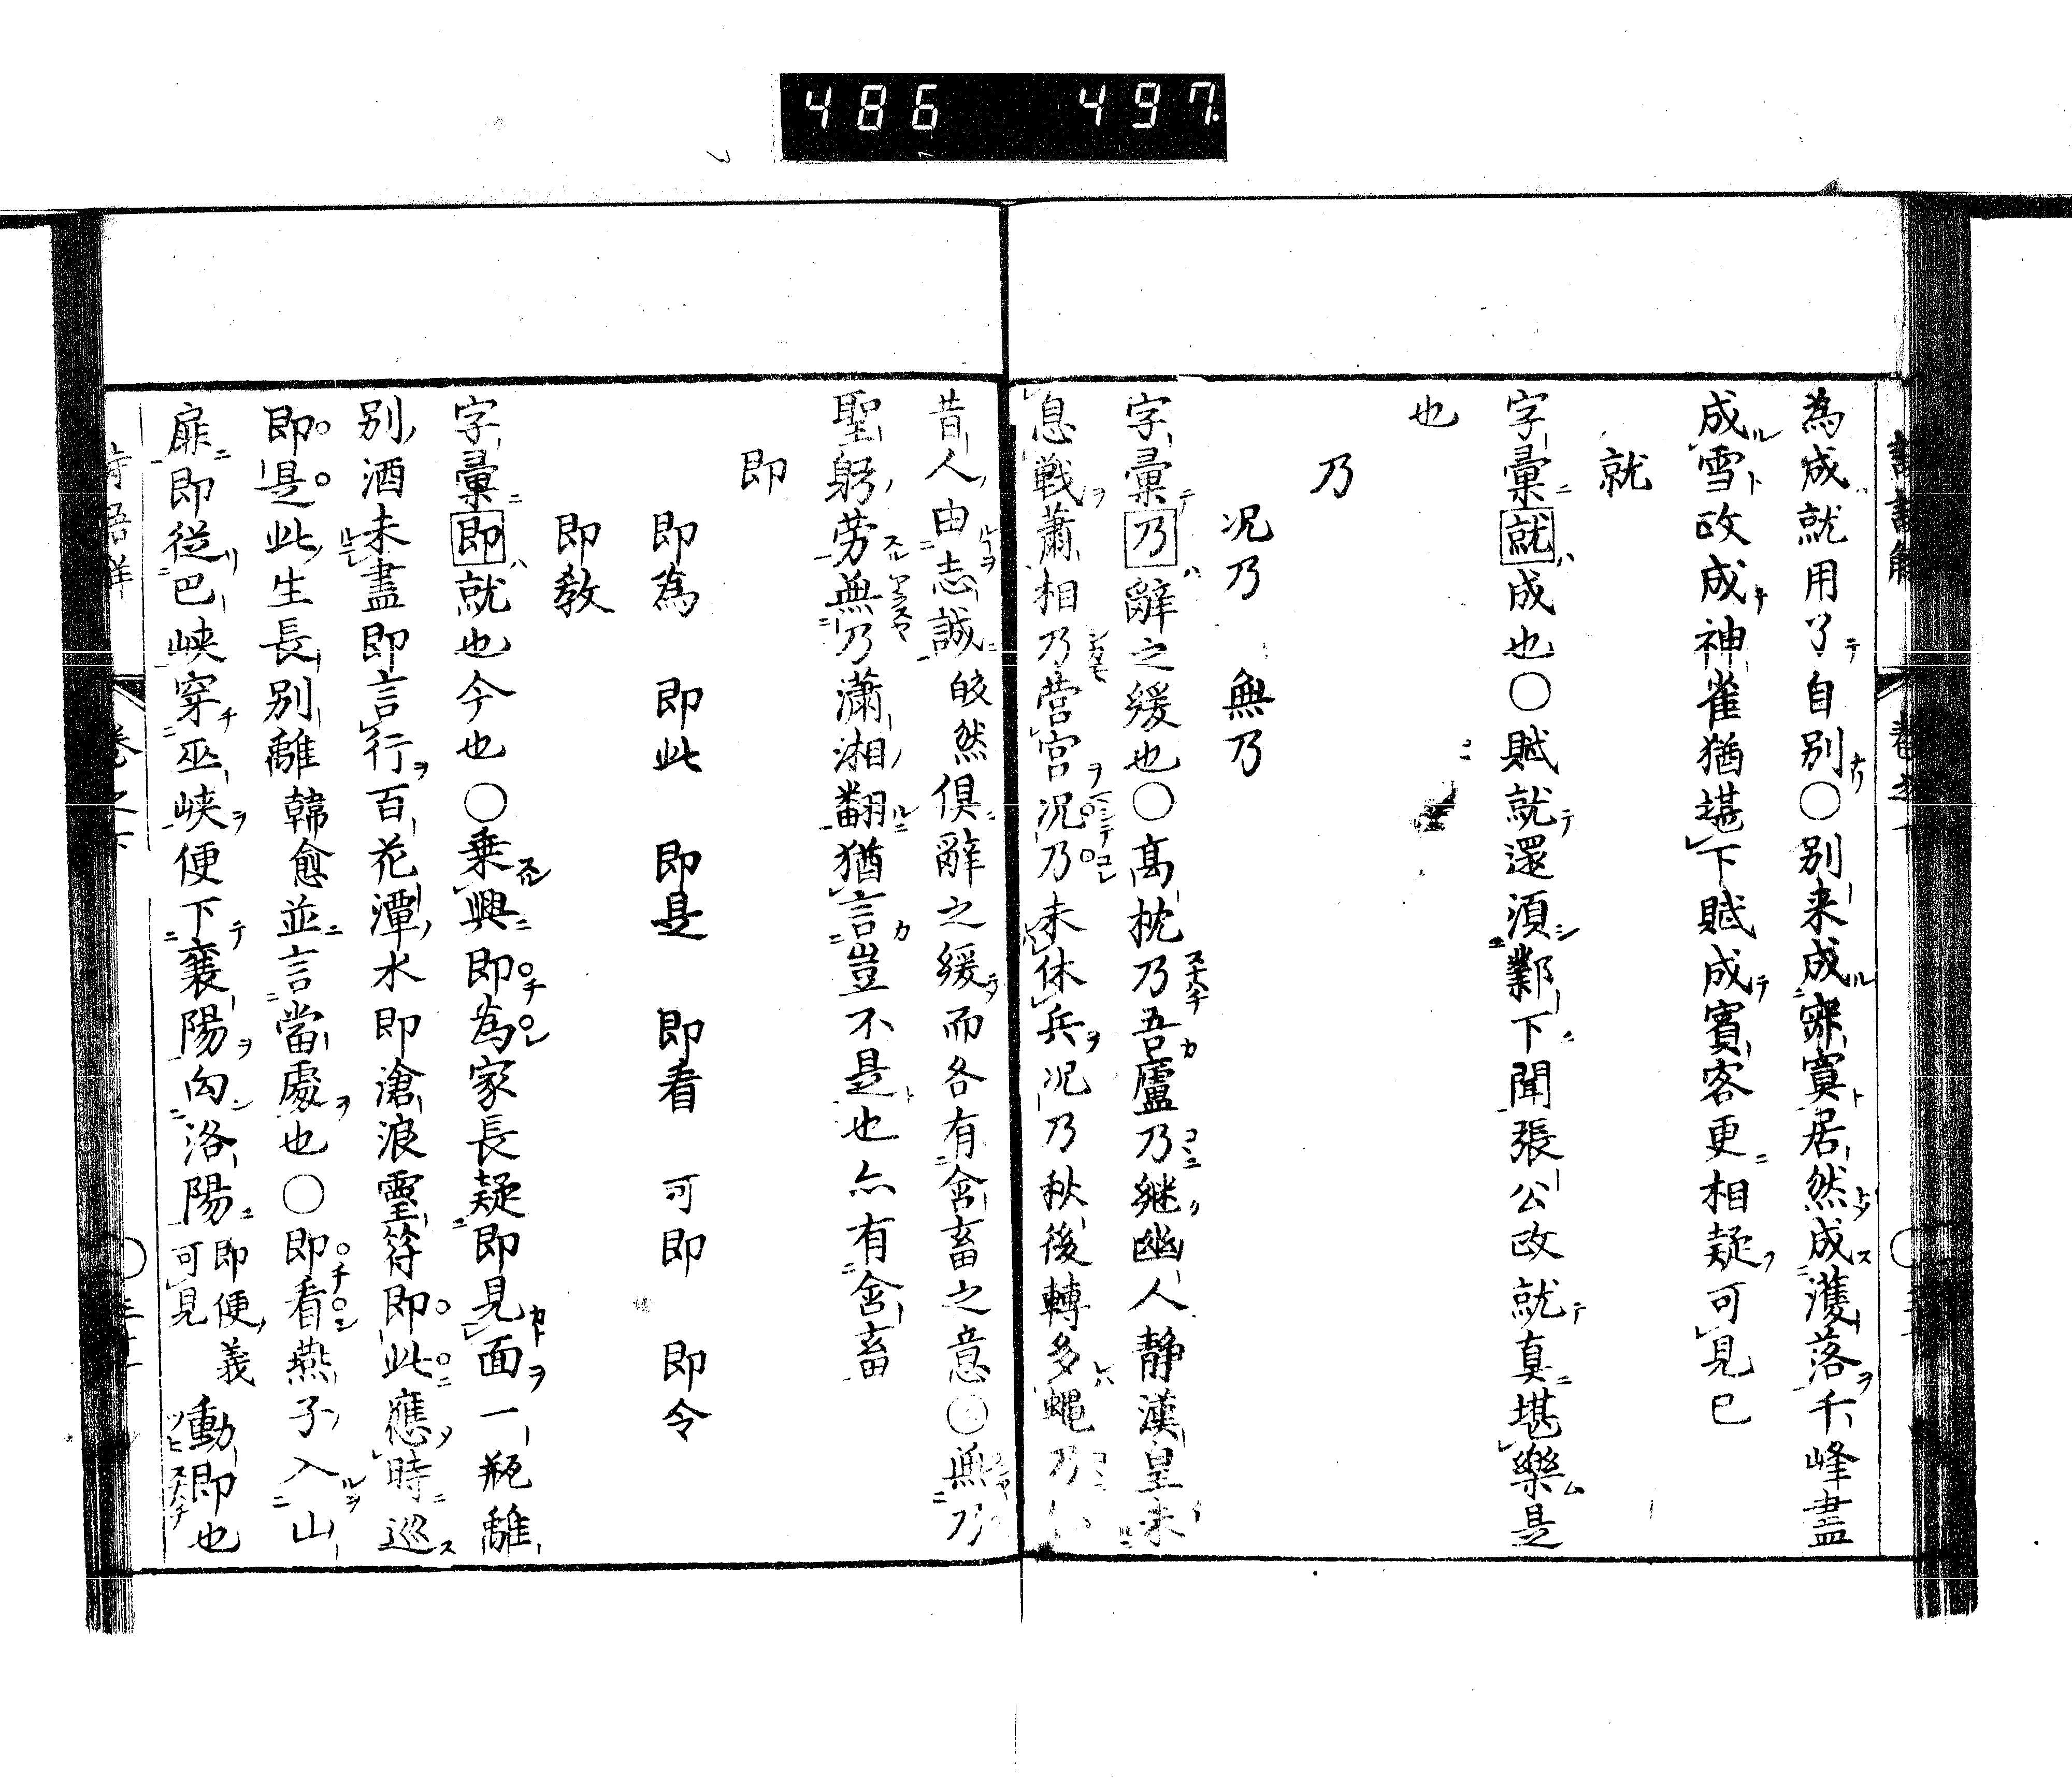 486 497.
為成就用了自別〇別来成寂寞居然成濩落千峰盡
成雪改成神雀猶堪下賦成賓客更相疑可見已
就
字彙就成也〇賦就還須鄴下聞張公改就真堪樂是
也
乃
况乃 無乃
字彙乃辭之緩也〇髙枕乃吾廬乃継幽人静漢皇未
息戦蕭相乃営宮况乃未休兵况乃秋後轉多蝿乃
昔人由志誠皎然俱辭之緩而各有含畜之意〇無乃
聖躬労無乃瀟湘翻猶言豈不是也亦有含畜
即
即為 即此 即是 即看 可即 即令
即教
字彙即就也今也〇乗興即為家長疑即見面一瓶離
別酒未盡即言行百花潭水即滄浪霊符即此應時巡
即是此生長別離韓愈並言當處也〇即看燕子入山
扉即従巴峡穿巫峡便下襄陽向洛陽即便義可見動即也